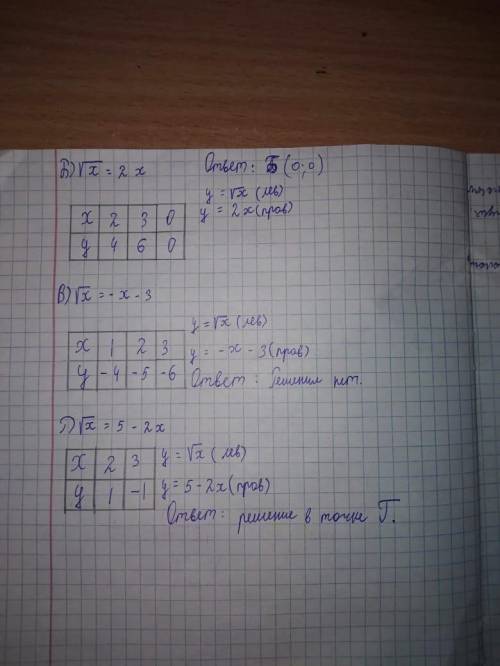 Б) √x = 2x
Ответ: Б (0;0)
y = √x (лев)
y = 2x (прав)
x 2 3 0
y 4 6 0
В) √x = -x - 3
y = √x (лев)
x 1 2 3
y = -x - 3 (прав)
y -4 -5 -6
Ответ: Решений нет.
Г) √x = 5 - 2x
x 2 3
y = √x (лев)
y 1 -1
y = 5 - 2x (прав)
Ответ: решение в точке Г.